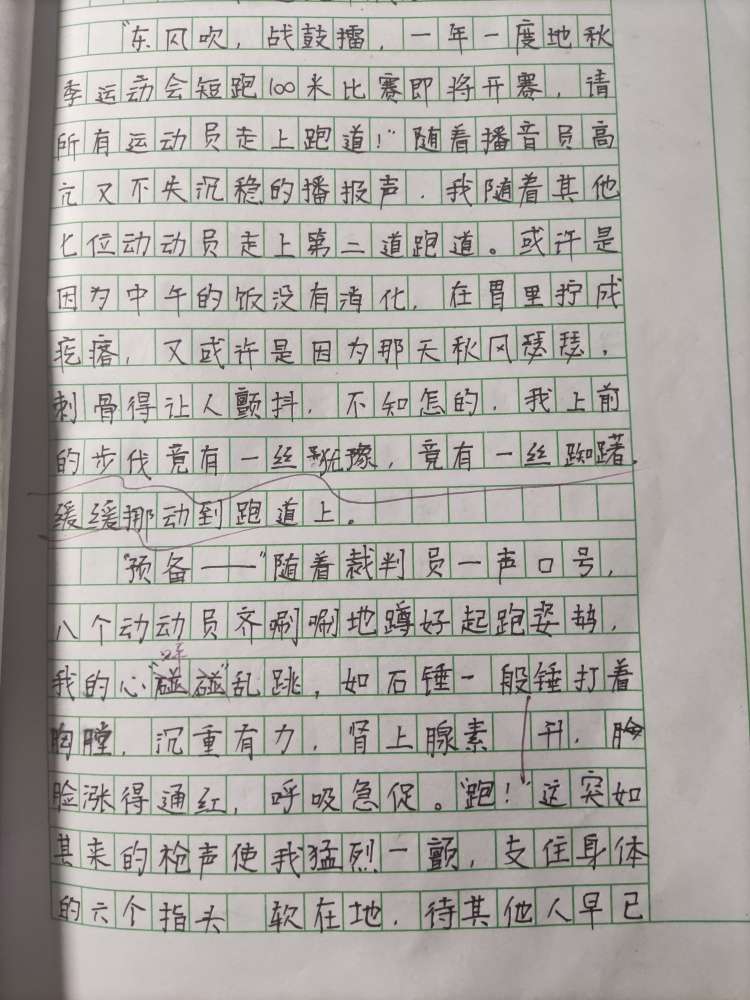 "东风吹，战鼓擂，一年一度地秋
季运动会短跑100米比赛即将开赛，请
所有运动员走上跑道！"随着播音员高
亢又不失沉稳的播报声，我随着其他
七位动动员走上第二道跑道。或许是
因为中午的饭没有消化，在胃里拧成
疙瘩，又或许是因为那天秋风瑟瑟，
刺骨得让人颤抖，不知怎的，我上前
的步伐竟有一丝犹豫，竟有一丝踟躇，
缓缓挪动到跑道上。
"预备——"随着裁判员一声口号，
八个动动员齐唰唰地蹲好起跑姿势，
我的心"碰碰"乱跳，如石锤一般锤打着
胸膛，沉重有力，肾上腺素 升，脸
脸涨得通红，呼吸急促。"跑！"这突如
其来的枪声使我猛烈一颤，支住身体
的六个指头 软在地，待其他人早已